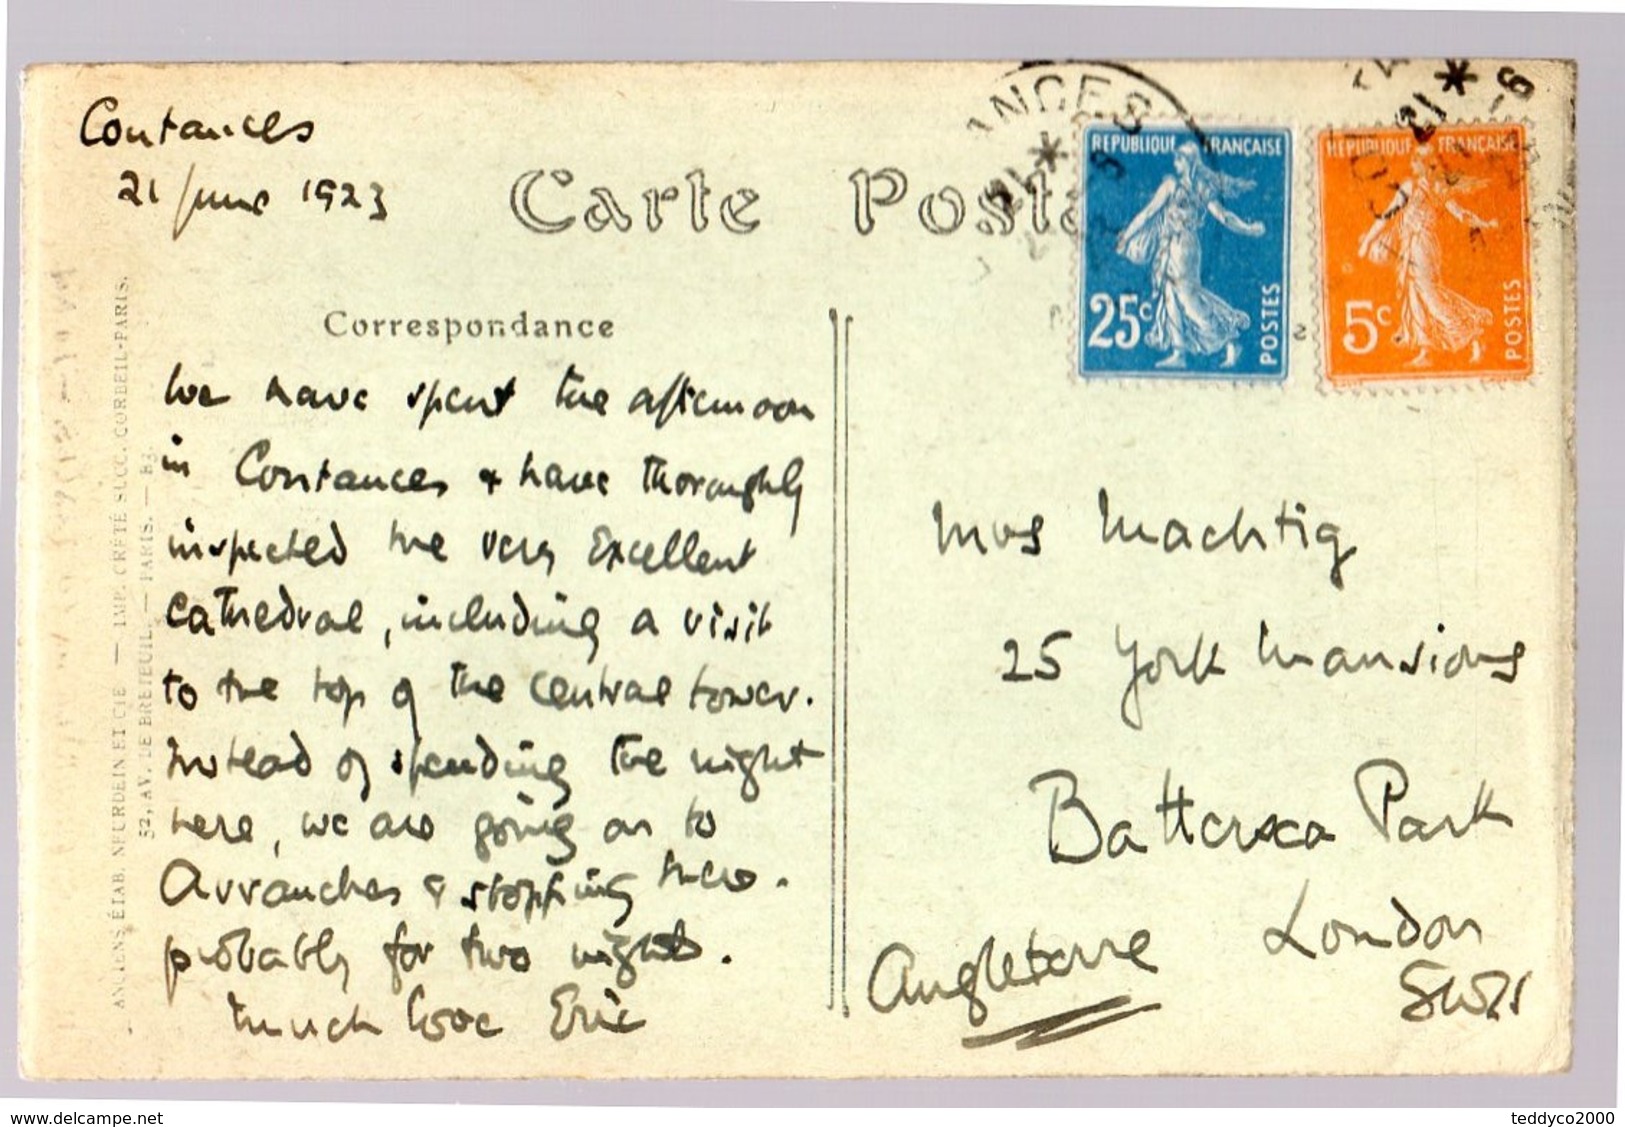 Coutances
21 June 1923
Carte Posta
Correspondance
We have spent the afternoon
in Coutances & have thoroughly
inspected the very excellent
cathedral, including a visit
to the top of the central tower.
Instead of spending the night
here, we are going on to
Avranches & stopping there.
probably for two nights.
Much love Eric
ANCIENS ÉTAB. NEURDEIN ET CIE — IMP. CRÉTÉ SUCC. CORBEIL-PARIS.
52, AV. DE BRETEUIL. — PARIS. — B3.
ANCES
REPUBLIQUE FRANÇAISE
25c
POSTES
2
REPUBLIQUE FRANÇAISE
5c
POSTES
Mrs Machtig
25 York Mansions
Battersea Park
London
SW11
Angleterre
www.delcampe.net
teddyco2000